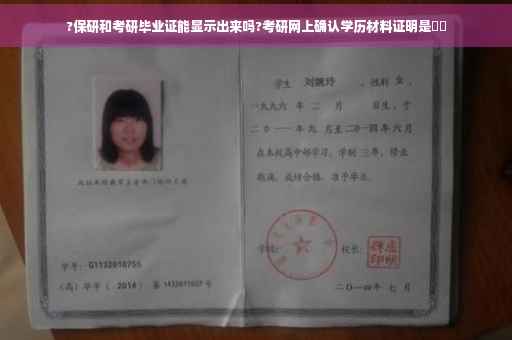 ?保研和考研毕业证能显示出来吗?考研网上确认学历材料证明是
学生 刘婉玲 ,性别 女 ,
一九九六 年 二 月 日生,于
二〇一一年 九 月至二〇一四年 六 月
在本校高中部学习,学制 三年,修业
期满,成绩合格,准予毕业。
学号: G1132010755
(高)毕字( 2014 )第 1432011027 号
学校:
校长:
二〇一四年 七 月